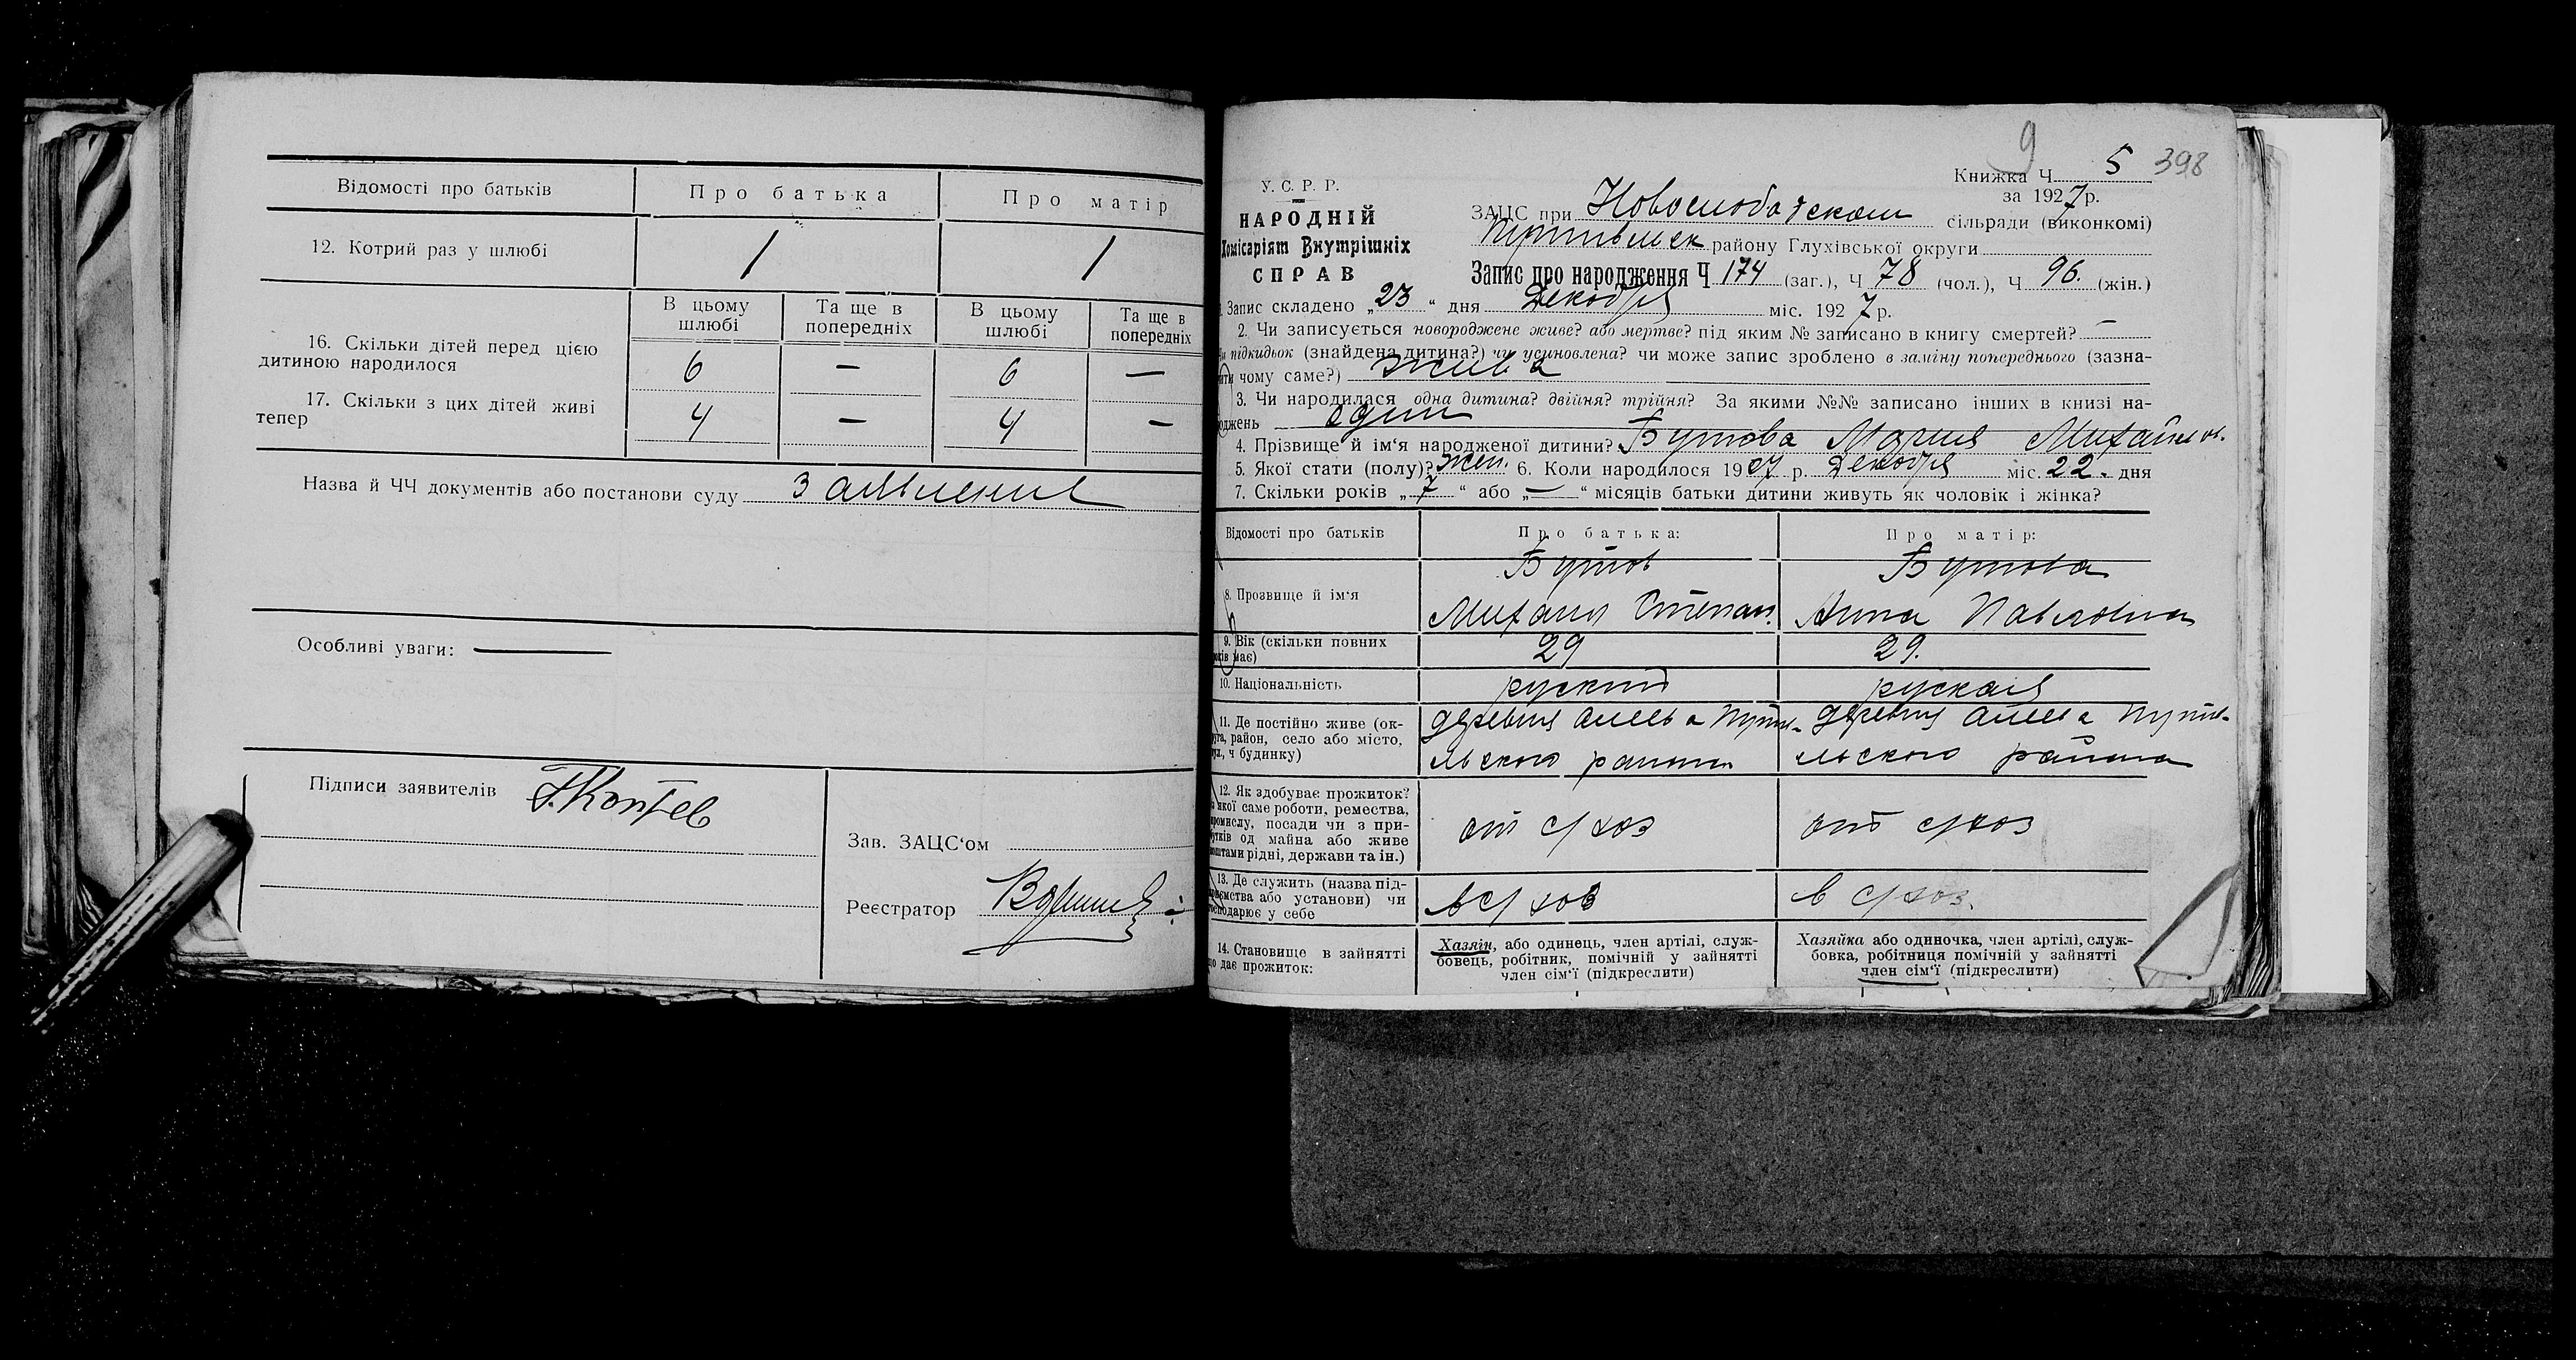 Відомості про батьків
Про батька
Про матір
12. Котрий раз у шлюбі
1
1
В цьому шлюбі
Та ще в попередніх
В цьому шлюбі
Та ще в попередніх
16. Скільки дітей перед цією
дитиною народилося
6
—
6
—
17. Скільки з цих дітей живі
тепер
4
—
4
—
Назва й ЧЧ документів або постанови суду заявление
Особливі уваги: —
Підписи заявителів
Зав. ЗАЦС‘ом
Реєстратор
9
Книжка Ч. 5 398
за 1927 р.
У. С. Р. Р.
НАРОДНІЙ
Комісаріят Внутрішніх
СПРАВ
ЗАЦС при Новослободском сільради (виконкомі)
Путивльск району Глухівської округи
Запис про народження Ч 174 (заг.), Ч 78 (чол.), Ч 96. (жін.)
Запис складено „23“ дня Декабря міс. 1927 р.
2. Чи записується новороджене живе? або мертве? під яким № записано в книгу смертей? —
підкидьок (знайдена дитина?) чи усиновлена? чи може запис зроблено в заміну попереднього (зазна-
чити чому саме?) жива
3. Чи народилася одна дитина? двійня? трійня? За якими №№ записано інших в книзі на-
роджень один
4. Прізвище й ім‘я народженої дитини? Бутова Мария Михайлов.
5. Якої стати (полу)? жен. 6. Коли народилося 1927 р. Декабря міс. 22 дня
7. Скільки років „7“ або „—“ місяців батьки дитини живуть як чоловік і жінка?
Відомості про батьків
Про батька:
Про матір:
8. Прозвище й ім‘я
Бутов
Михаил Степан.
Бутова
Анна Павловна
9. Вік (скільки повних
років має)
29
29.
10. Національність
руский
руская
11. Де постійно живе (ок-
руга, район, село або місто,
вул., ч будинку)
деревня Линева Пути-
льского района
деревня Линева Пути-
льского района
12. Як здобуває прожиток?
з якої саме роботи, ремества,
промислу, посади чи з при-
бутків од майна або живе
коштами рідні, держави та ін.)
от с/хоз
от с/хоз
13. Де служить (назва під-
приємства або установи) чи
господарює у себе
в с/хоз
в с/хоз.
14. Становище в зайнятті
що дає прожиток:
Хазяїн, або одинець, член артілі, служ-
бовець, робітник, помічній у зайнятті
член сім‘ї (підкреслити)
Хазяйка або одиночка, член артілі, служ-
бовка, робітниця помічній у зайнятті
член сім‘ї (підкреслити)